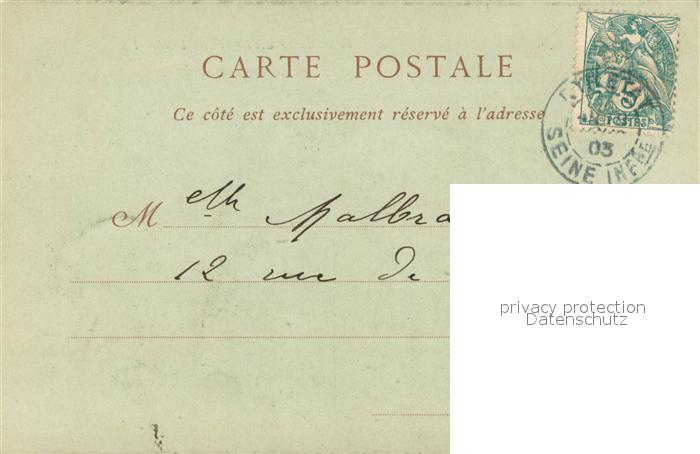 CARTE POSTALE
Ce côté est exclusivement réservé à l'adresse
5
POSTES
03
SEINE INFRE
M elle Malbra
12 rue de
privacy protection
Datenschutz